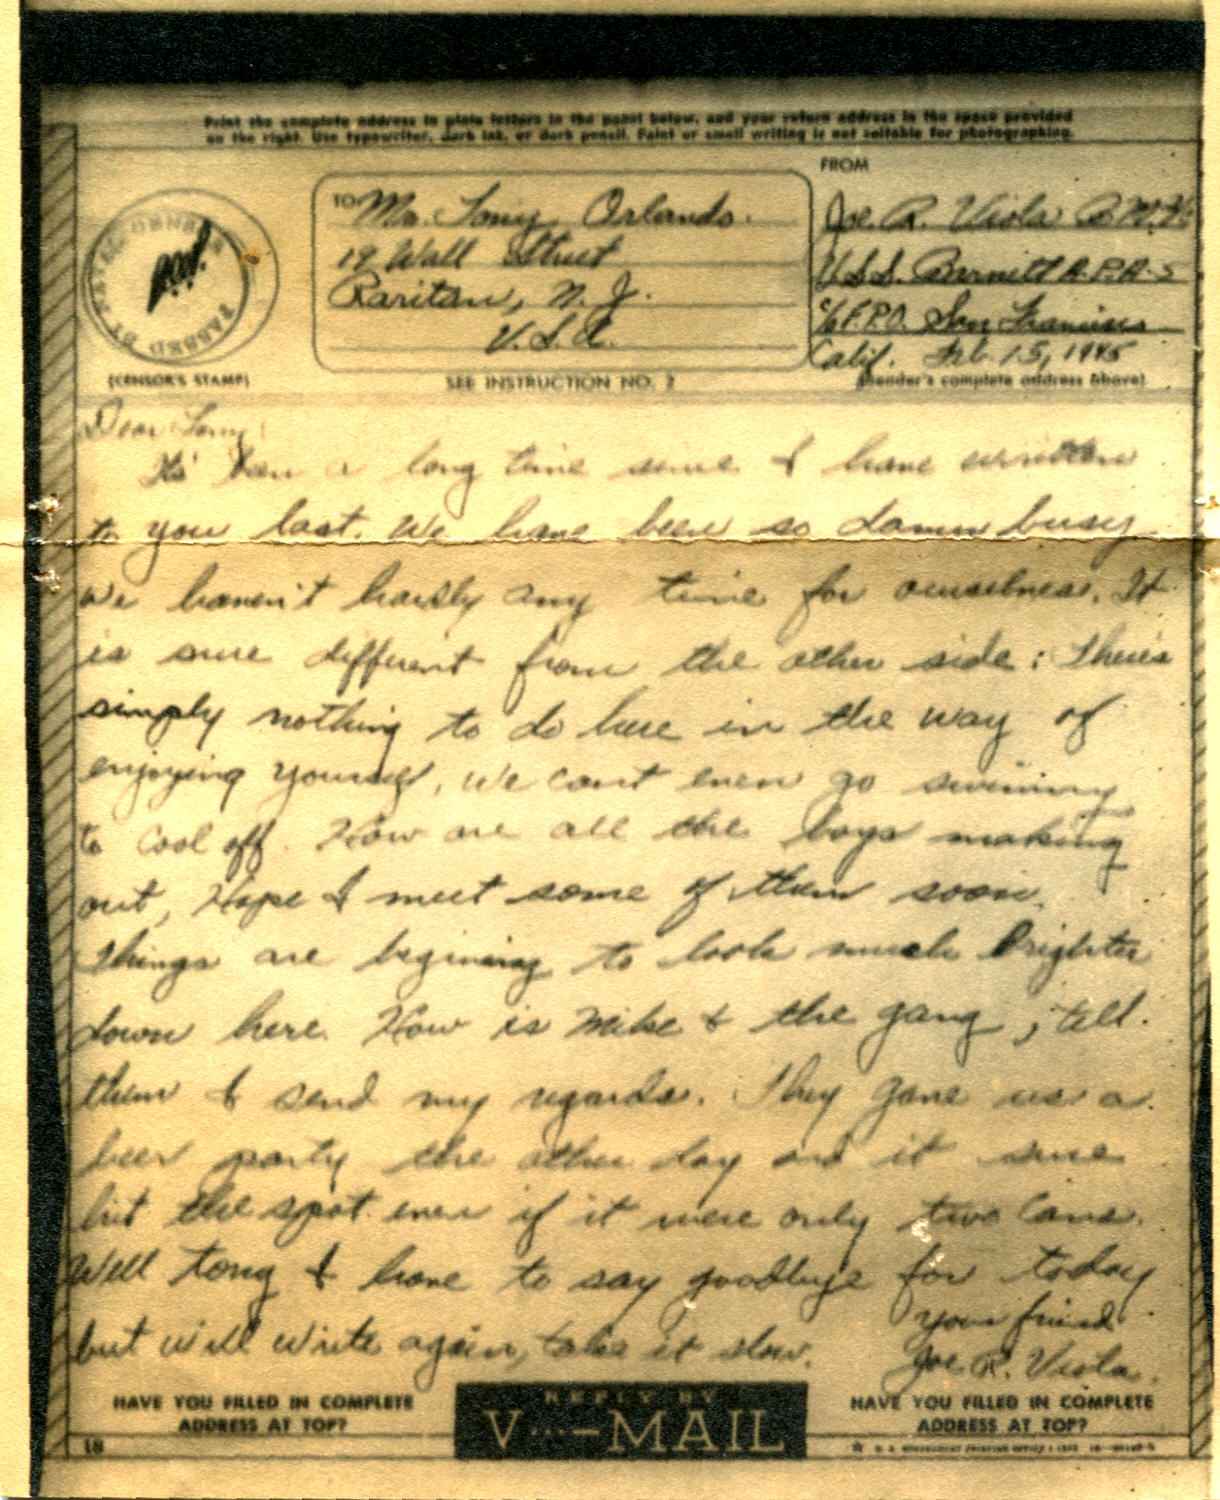 Print the complete address in plain letters in the panel below, and your return address in the space provided
on the right. Use typewriter, dark ink, or dark pencil. Faint or small writing is not suitable for photographing.
FROM
TO
Mr. Tony Orlando.
19 Wall Street
Raritan, N. J.
U.S.A.
Joe. R. Viola B.M.
U.S.S. Barnett A.P.A-5
c/o F.P.O. San Francisco
Calif. Feb. 15, 1945
PASSED BY NAVAL CENSOR
(CENSOR'S STAMP)
SEE INSTRUCTION NO. 2
(Sender's complete address above)
Dear Tony
Its been a long time since I have written
to you last. We have been so damn busy
we haven't hardly any time for ourselves. It
is sure different from the other side: There's
simply nothing to do here in the way of
enjoying yourself, we cant even go swiming
to cool off. How are all the boys making
out, Hope I meet some of them soon.
Things are begining to look much brighter
down here. How is Mike & the gang, tell.
them I send my regards. They gave us a
beer party the other day and it sure
hit the spot. even if it were only two cans.
Well tony I have to say goodbye for today
but will write again, take it slow.
your friend
Joe R. Viola.
HAVE YOU FILLED IN COMPLETE
ADDRESS AT TOP?
REPLY BY
V···-MAIL
HAVE YOU FILLED IN COMPLETE
ADDRESS AT TOP?
18
☆ U. S. GOVERNMENT PRINTING OFFICE